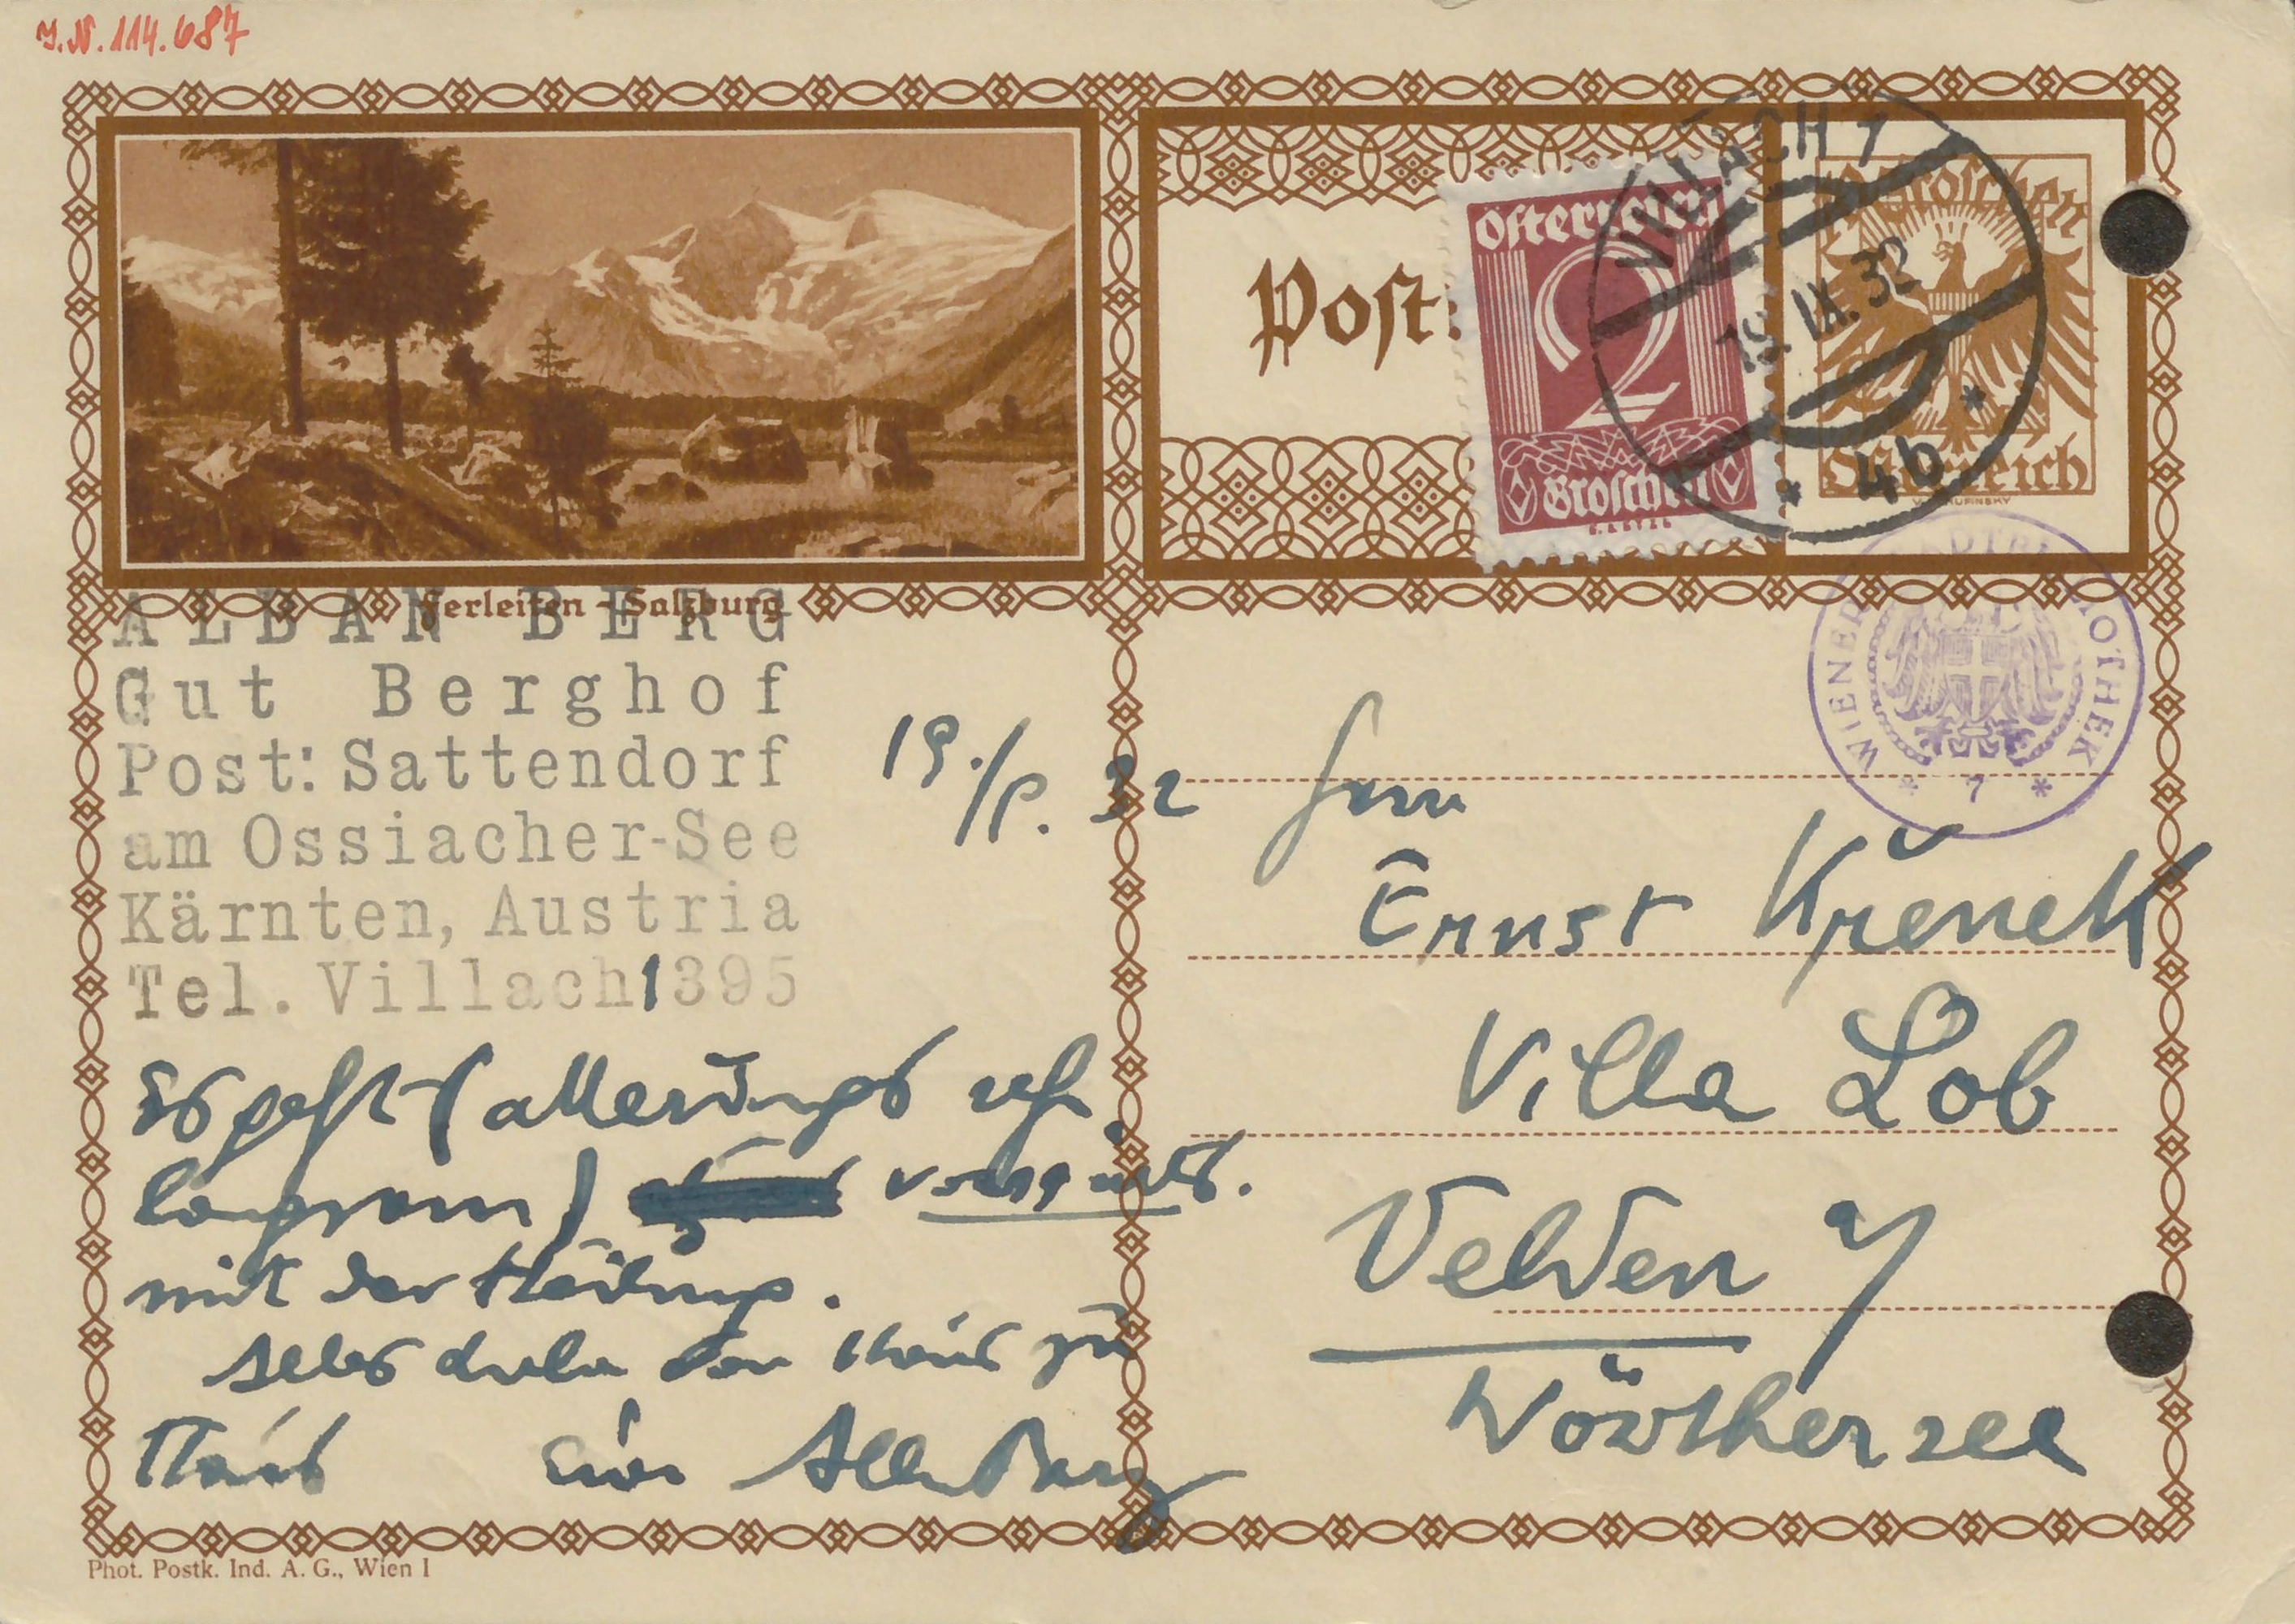 J.N. 114.687
Ferleiten - Salzburg
Post
Österreich
2
Groschen
VILLACH 1
19. IX. 32
* 4b *
Groschen
Österreich
WIENER STADTBIBLIOTHEK
* 7 *
ALBAN BERG
Gut Berghof
Post: Sattendorf
am Ossiacher-See
Kärnten, Austria
Tel. Villach 1395
19./9. 32
Es geht (allerdings sehr
langsam) vorwärts.
mit der Heilung.
Alles Liebe von Haus zu
Haus Euer Alban Berg
Herrn
Ernst Křenek
Villa Lob
Velden a/
Wörthersee
Phot. Postk. Ind. A. G., Wien I